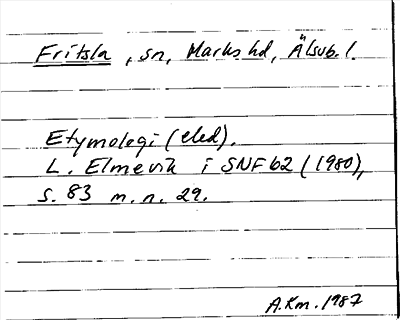 Fritsla, sn, Marks hd, Älvsb. l.
Etymologi (eled).
L. Elmevik i SNF 62 (1980),
s. 83 m. n. 29.
A.Km. 1987